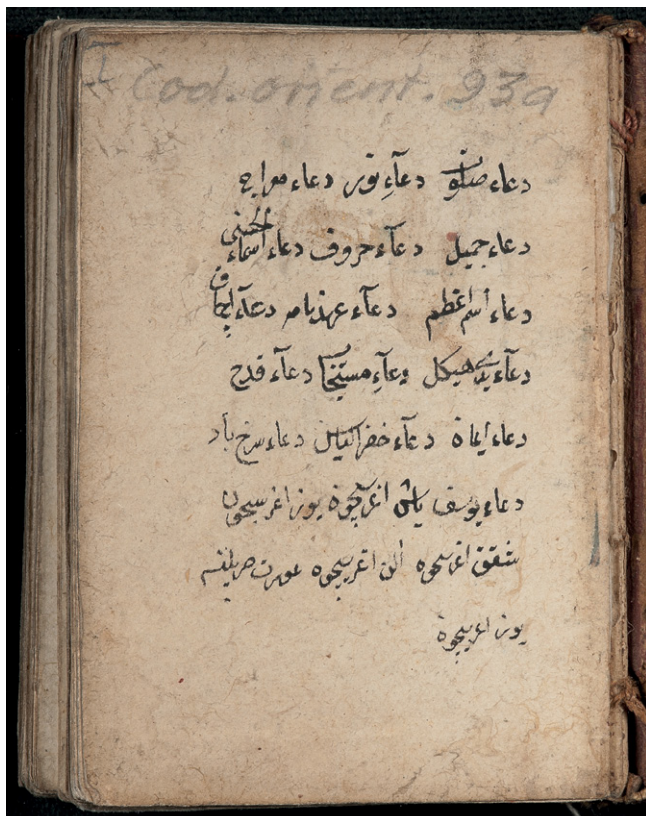 I Cod. orient. 239
دعاء صلوة دعآء نور دعاء معراج
دعاء جميل دعآء حروف دعاء اسماء الحسنى
دعاء اسم اعظم دعآء عهدنامه دعآء
دعآء يدى هيكل دعآء مستجاب دعآء قدح
دعاء ايمان دعآء خضر الياس دعاء سرخ باد
دعاء يوسف باش اغريچون يوز اغريسيچون
شقق اغريسيچون اغريسيچون عورت
يوز اغريسيچون